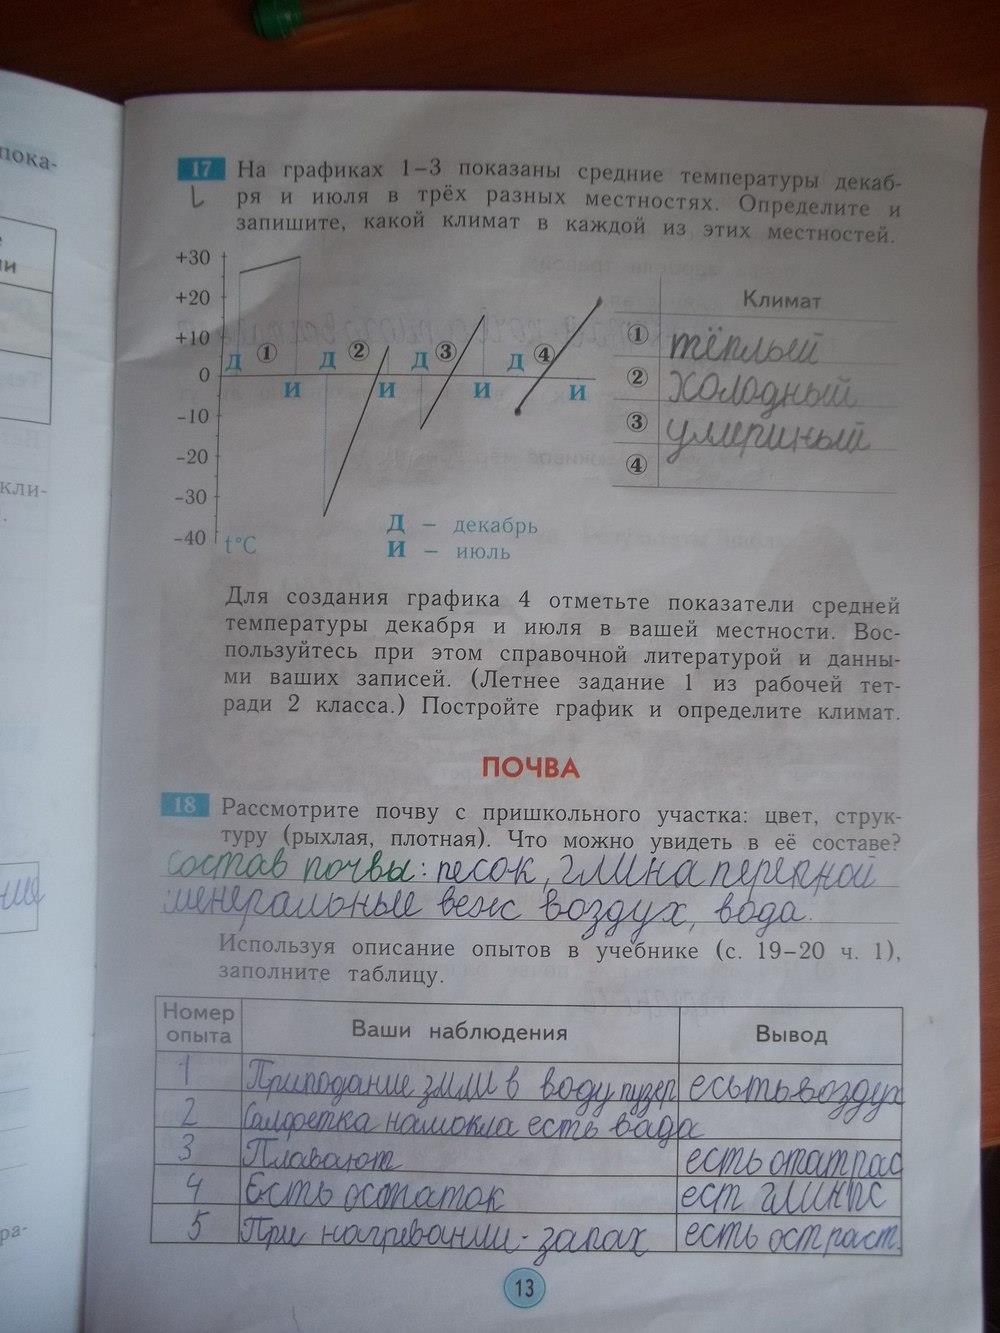 пока-
и
кли-
ра-
17 На графиках 1–3 показаны средние температуры декаб-
ря и июля в трёх разных местностях. Определите и
запишите, какой климат в каждой из этих местностей.
+30
+20
+10
0
-10
-20
-30
-40
t°C
Д 1 Д 2 Д 3 Д 4
И И И И
Д – декабрь
И – июль
Климат
1 тёплый
2 холодный
3 умериный
4
Для создания графика 4 отметьте показатели средней
температуры декабря и июля в вашей местности. Вос-
пользуйтесь при этом справочной литературой и данны-
ми ваших записей. (Летнее задание 1 из рабочей тет-
ради 2 класса.) Постройте график и определите климат.
ПОЧВА
18 Рассмотрите почву с пришкольного участка: цвет, струк-
туру (рыхлая, плотная). Что можно увидеть в её составе?
состав почвы: песок, глина
менеральные воздух, вода.
Используя описание опытов в учебнике (с. 19–20 ч. 1),
заполните таблицу.
Номер опыта Ваши наблюдения Вывод
1 в воду воздух
2 Салфетка намокла есть вада
3 Плавают есть
4 Есть остаток
5 При нагревании - запах есть
13